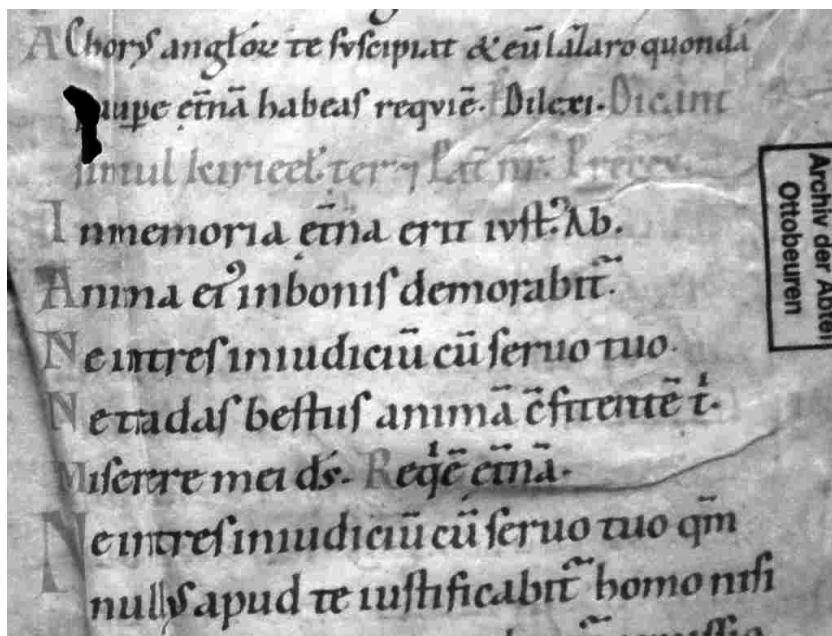 A Chorus anglor te suscipiat & cū lazaro quondā
paupe et̄nā habeas requiē. Dilexi. Dicant
simul kirieel. ter Pat nr. Preces.
Inmemoria et̄na erit iust. Ab.
Anima ei inbonis demorabit.
Ne intres iniudiciū cū seruo tuo.
Ne tradas bestiis animā c̄fitentē t.
Miserere mei ds. Reqē et̄nā.
Ne intres iniudiciū cū seruo tuo qm̄
nullus apud te iustificabit homo nisi
Archiv der Abtei
Ottobeuren